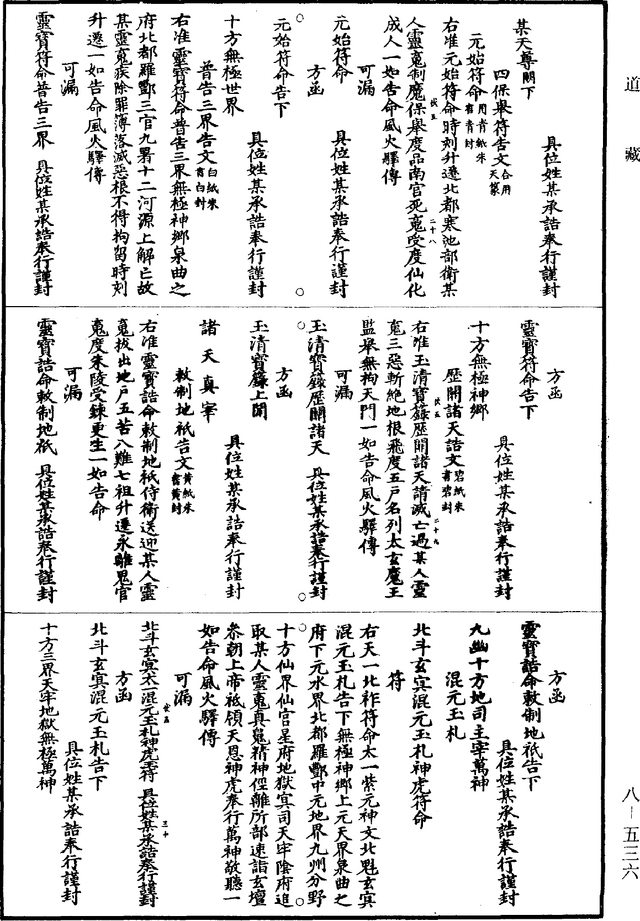 道藏
某天尊閤下
具位姓某承誥奉行謹封
四保舉符告文合用天篆
元始符命用青紙朱書青封
右准元始符命時刻升遷北都寒池部衛某
人靈䰟制魔保舉度品南宫死䰟受度仙化
伏五
二十八
成人一如告命風火驛傳
可漏
元始符命
具位姓某承誥奉行謹封
方函
元始符命告下
十方無極世界
具位姓某承誥奉行謹封
普告三界告文白紙朱書白封
右准靈寶符命普告三界無極神鄉泉曲之
府北都羅酆三官九署十二河源上解亡故
某靈䰟疾除罪簿落滅惡根不得拘留時刻
升遷一如告命風火驛傳
可漏
靈寶符命普告三界
具位姓某承誥奉行謹封
方函
靈寶符命告下
十方無極神鄉
具位姓某承誥奉行謹封
歷關諸天誥文碧紙朱書碧封
右准玉清寶籙歷關諸天請滅亡過某人靈
䰟三惡斬絶地根飛度五戶名列太玄魔王
伏五
二十九
監舉無拘天門一如告命風火驛傳
可漏
玉清寶籙歷關諸天
具位姓某承誥奉行謹封
方函
玉清寶籙上聞
諸天真宰
具位姓某承誥奉行謹封
敕制地祇告文黄紙朱書黄封
右准靈寶誥命敕制地祇侍衛送迎某人靈
䰟拔出地戶五苦八難七祖升遷永離鬼官
䰟度朱陵受鍊更生一如告命
可漏
靈寶誥命敕制地祇
具位姓某承誥奉行謹封
方函
靈寶誥命敕制地祇告下
具位姓某承誥奉行謹封
九幽十方地司主宰萬神
混元玉札
北斗玄冥混元玉札神虎符命
符
右天一北祚符命太一紫元神文北魁玄冥
混元玉札告下無極神鄉上元天界泉曲之
府下元水界北都羅酆中元地界九州分野
十方仙界仙官星府地獄冥司天牢陰府追
取某人靈䰟真䰟精神徑離所部速詣玄壇
叅朝上帝祇領天恩神虎奉行萬神敬聽一
如告命風火驛傳
可漏
北斗玄冥太一混元玉札神虎玉符
具位姓某承誥奉行謹封
伏五
三十
方函
北斗玄冥混元玉札告下
具位姓某承誥奉行謹封
十方三界天牢地獄無極萬神
八－五三六